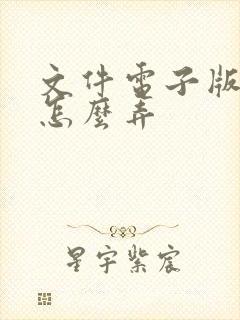 文件電子版
怎麼弄
星宇紫宸